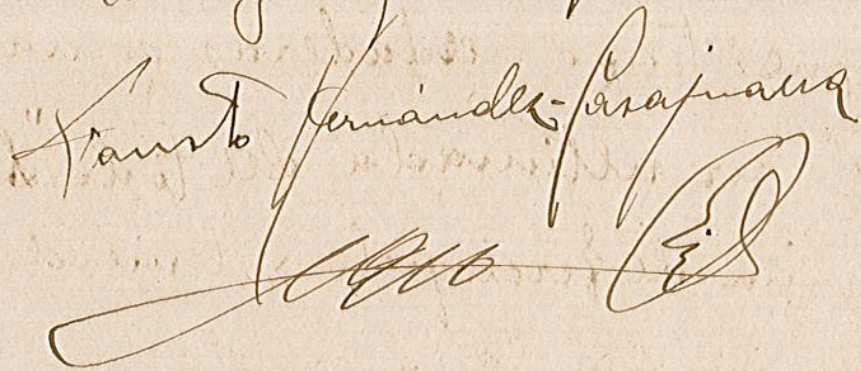 Fausto Hernández-Casajuana